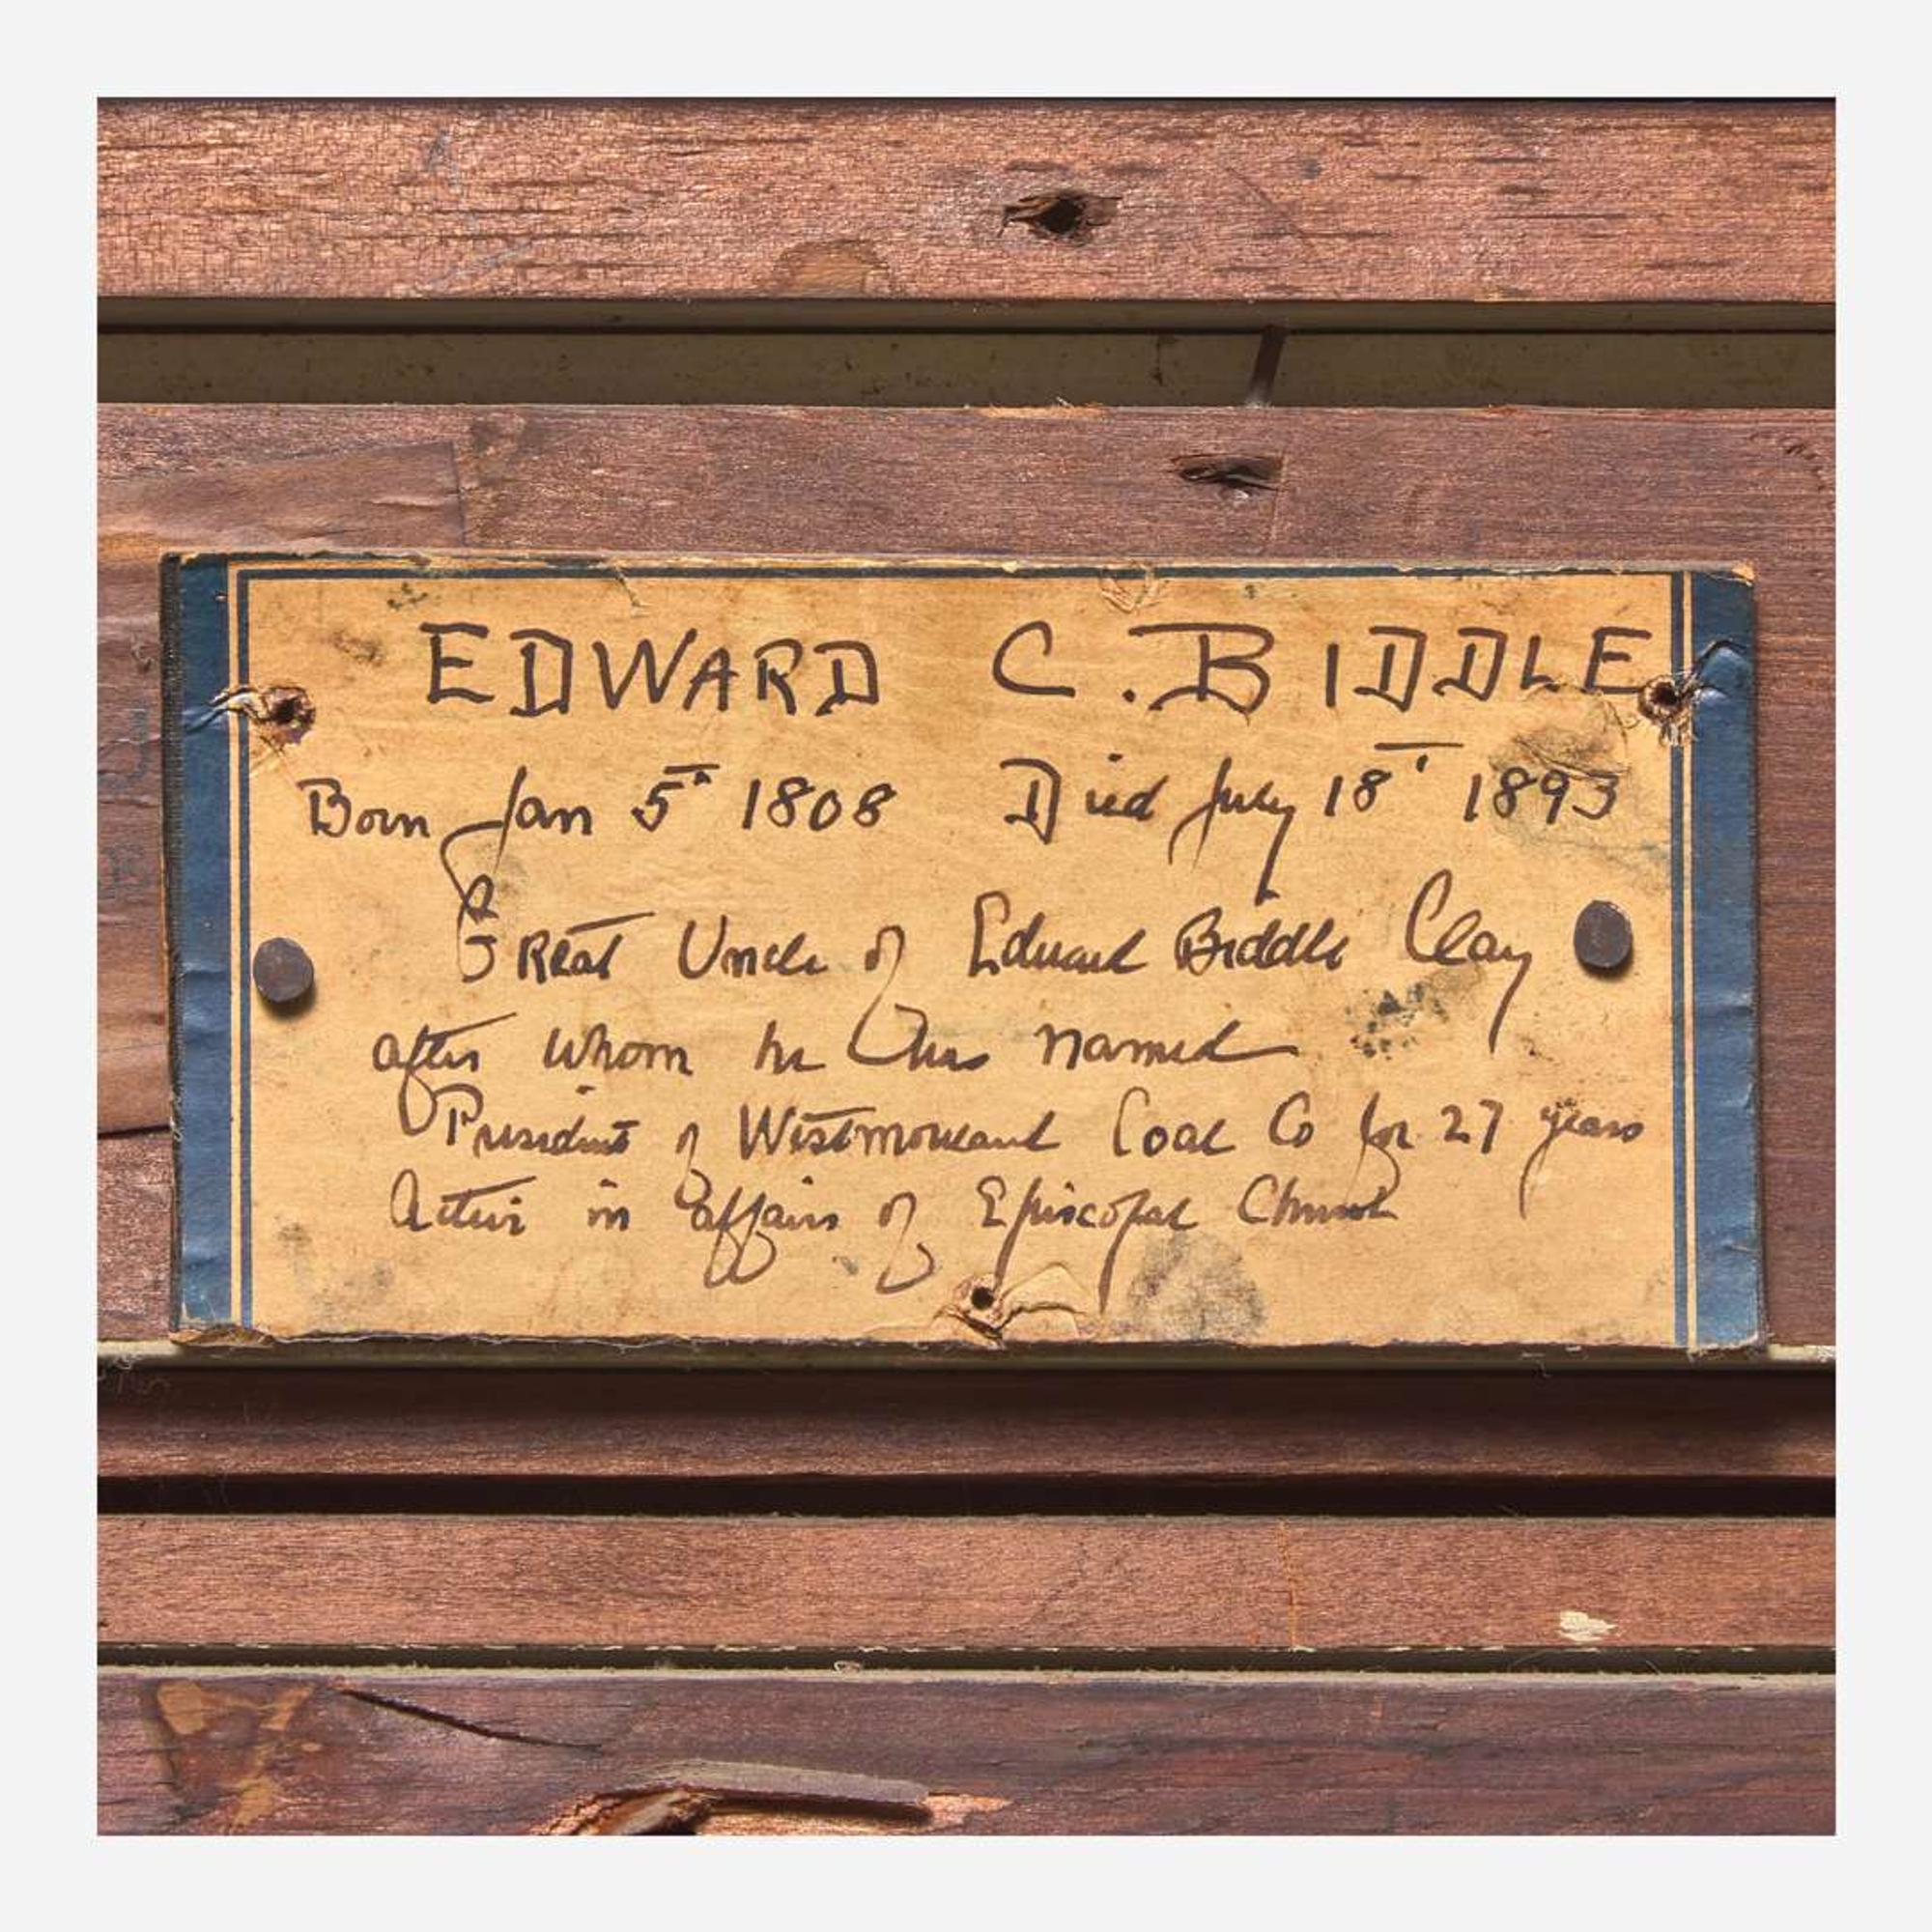 EDWARD C. BIDDLE
Born Jan 5" 1808 Died July 18' 1893
Great Uncle of Edward Biddle Clay
after whom he was named
President of Westmoreland Coal Co for 27 years
Active in affairs of Episcopal Church